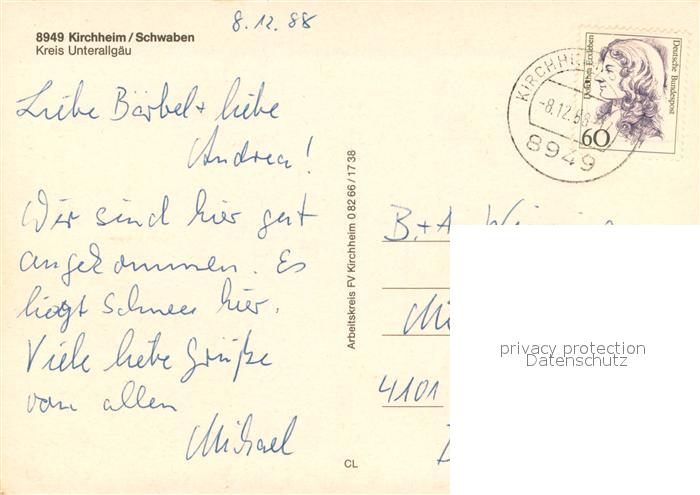 8.12.88
8949 Kirchheim/Schwaben
Kreis Unterallgäu
Liebe Bärbel + liebe
Andrea!
Wir sind hier gut
angekommen. Es
liegt Schnee hier.
Viele liebe Grüße
von allen
Michael
Arbeitskreis FV Kirchheim 0 82 66 / 17 38
CL
KIRCHH
-8.12.88
8949
Dorothea Erxleben
Deutsche Bundespost
60
B. + A.
4101
privacy protection
Datenschutz